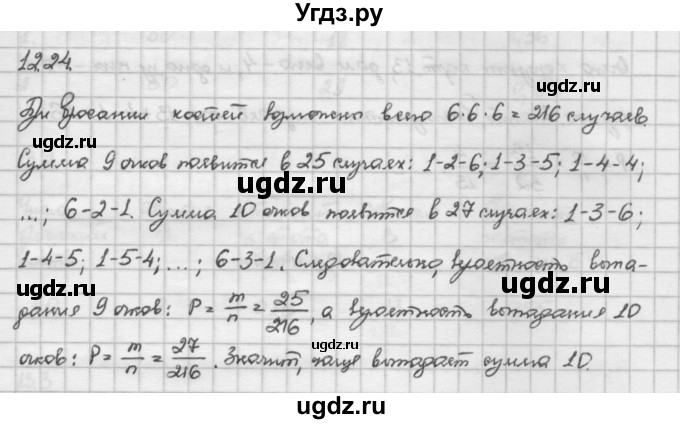 Угдз.ру
12.24.
При бросании костей возможны всего 6·6·6 = 216 случаев.
Сумма 9 очков появится в 25 случаях: 1-2-6; 1-3-5; 1-4-4;
...; 6-2-1. Сумма 10 очков появится в 27 случаях: 1-3-6;
1-4-5; 1-5-4; ...; 6-3-1. Следовательно, вероятность выпа-
дания 9 очков: P = m/n = 25/216, а вероятность выпадания 10
очков: P = m/n = 27/216. Значит, чаще выпадает сумма 10.
ugdz.ru
ugdz.ru
ugdz.ru
ugdz.ru
ugdz.ru
ugdz.ru
ugdz.ru
ugdz.ru
ugdz.ru
ugdz.ru